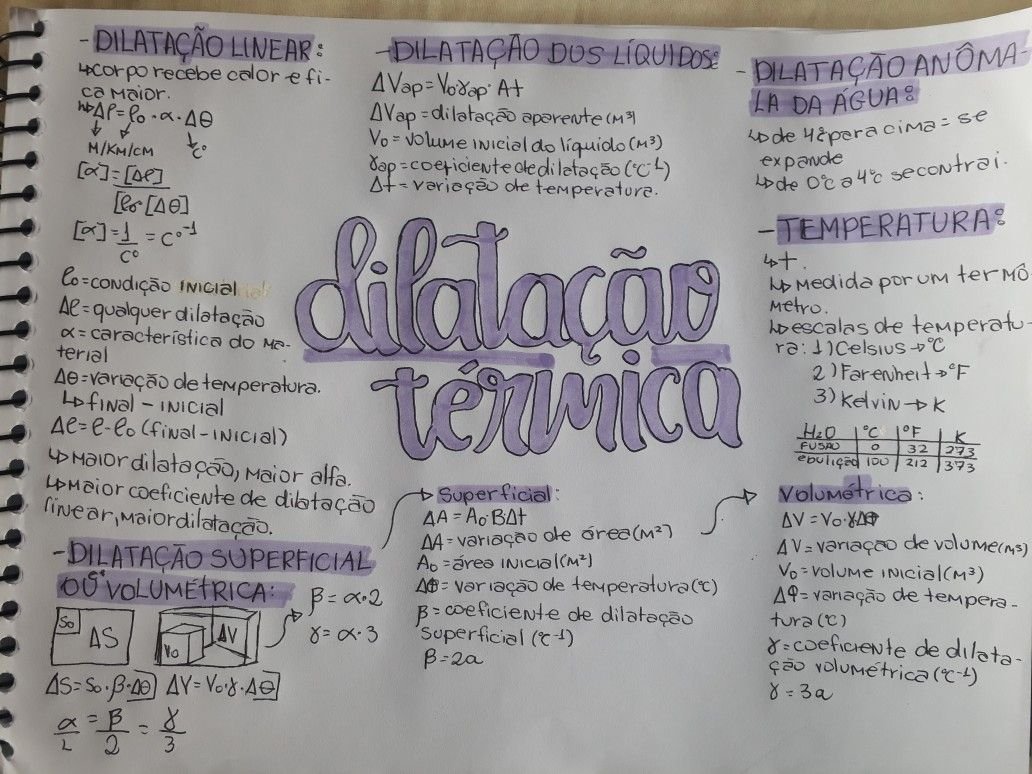 - DILATAÇÃO LINEAR:
↳corpo recebe calor e fi-
ca maior.
↳Δℓ=ℓ₀·α·Δθ
M/KM/CM C°
[α]=[Δℓ]
[ℓ₀[Δθ]
[α]=1/C° = C°⁻¹
ℓ₀=condição inicial
Δℓ=qualquer dilatação
α=característica do ma-
terial
Δθ=variação de temperatura.
↳final - inicial
Δℓ=ℓ-ℓ₀(final-inicial)
↳maior dilatação, maior alfa.
↳maior coeficiente de dilatação
linear, maior dilatação.
- DILATAÇÃO SUPERFICIAL
OU VOLUMÉTRICA:
S₀ ΔS
V₀ ΔV
β=α·2
γ=α·3
ΔS=S₀·β·Δθ ΔV=V₀·γ·Δθ
α/L = β/2 = γ/3
- DILATAÇÃO DOS LÍQUIDOS:
ΔVap=V₀γap·Δt
ΔVap=dilatação aparente(m³)
V₀=volume inicial do líquido(m³)
γap=coeficiente de dilatação(°C⁻¹)
Δt=variação de temperatura.
dilatação
térmica
Superficial:
ΔA=A₀·BΔt
ΔA=variação de área(m²)
A₀=área inicial(m²)
Δθ=variação de temperatura(°C)
β=coeficiente de dilatação
superficial(°C⁻¹)
β=2a
- DILATAÇÃO ANÔMA-
LA DA ÁGUA:
↳de 4° para cima = se
expande
↳de 0°C a 4°C se contrai.
- TEMPERATURA:
↳t.
↳Medida por um termô
metro.
↳escalas de temperatu-
ra: 1)Celsius→°C
2)Farenheit→°F
3)Kelvin→K
H₂O | °C | °F | K
FUSÃO | 0 | 32 | 273
ebulição | 100 | 212 | 373
Volumétrica:
ΔV=V₀·γΔθ
ΔV=variação de volume(m³)
V₀=volume inicial(m³)
Δφ=variação de tempera-
tura(°C)
γ=coeficiente de dilata-
ção volumétrica(°C⁻¹)
γ=3a